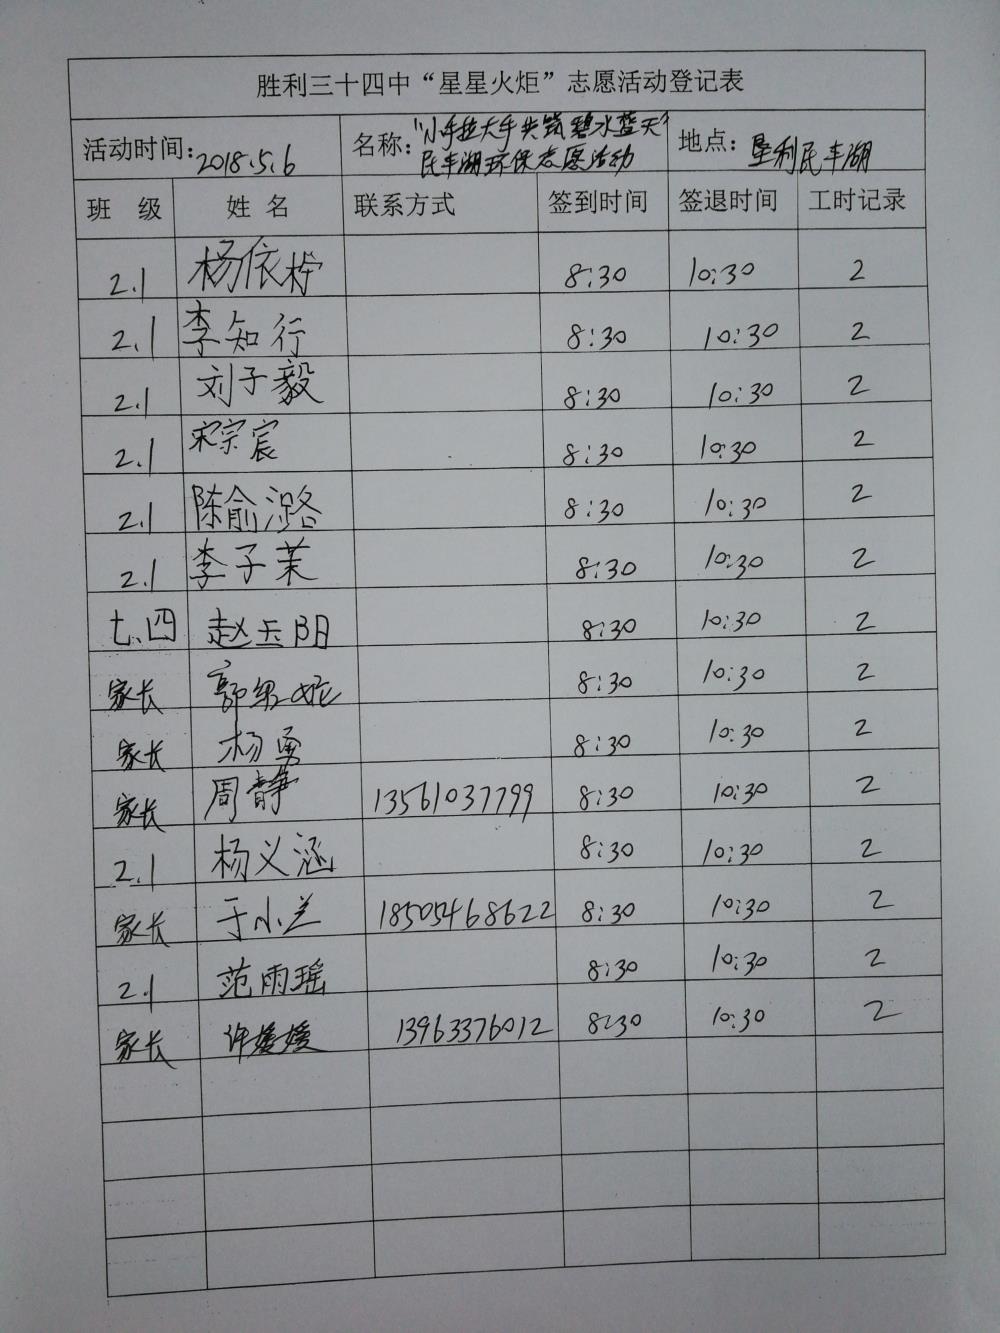 胜利三十四中“星星火炬”志愿活动登记表
活动时间:2018.5.6 名称:“小手拉大手共筑碧水蓝天” 地点:垦利民丰湖
民丰湖环保志愿活动
班 级 姓 名 联系方式 签到时间 签退时间 工时记录
2.1 杨依柠 8:30 10:30 2
2.1 李知行 8:30 10:30 2
2.1 刘子毅 8:30 10:30 2
2.1 宋宗宸 8:30 10:30 2
2.1 陈俞潞 8:30 10:30 2
2.1 李子茉 8:30 10:30 2
七.四 赵玉阳 8:30 10:30 2
家长 8:30 10:30 2
家长 杨勇 8:30 10:30 2
家长 周静 13561037799 8:30 10:30 2
2.1 杨义涵 8:30 10:30 2
家长 于小兰 18505468622 8:30 10:30 2
2.1 范雨瑶 8:30 10:30 2
家长 许媛媛 13963376012 8:30 10:30 2